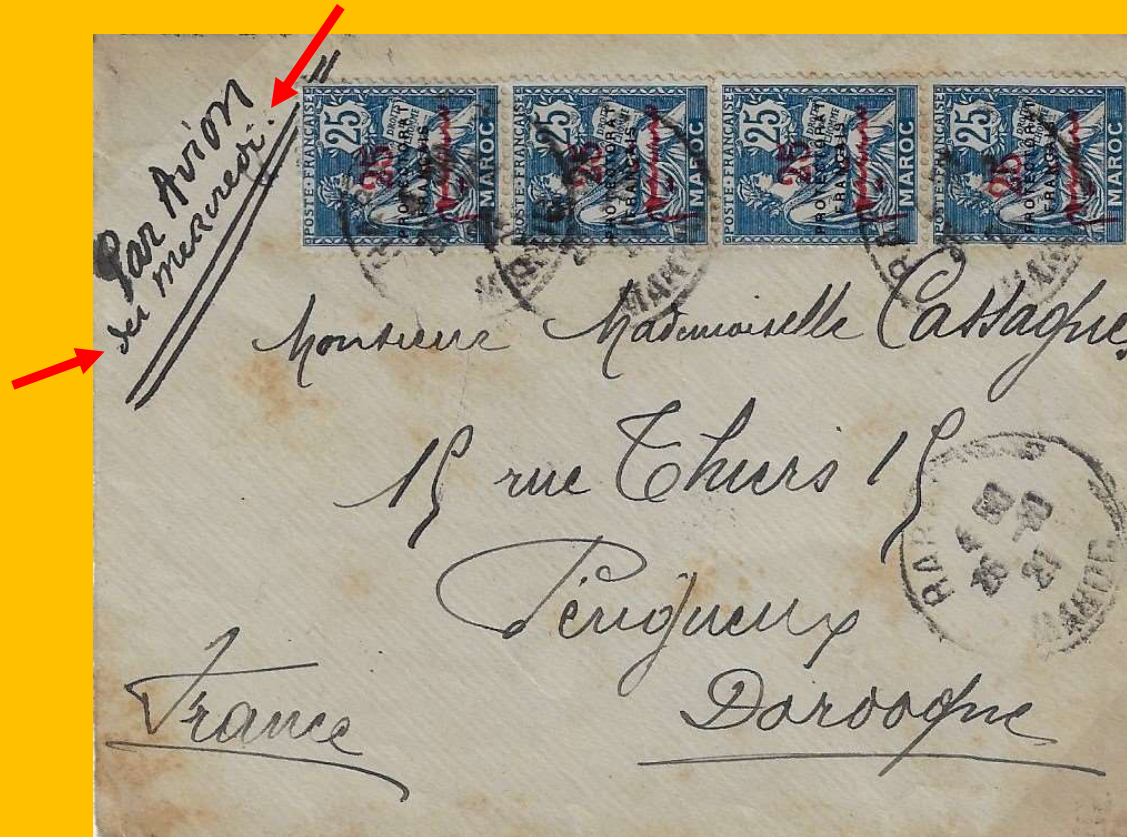 Par Avion
du mercredi.
POSTE FRANÇAISE 25 25 PROTECTORAT FRANÇAIS MAROC
POSTE FRANÇAISE 25 25 PROTECTORAT FRANÇAIS MAROC
POSTE FRANÇAISE 25 25 PROTECTORAT FRANÇAIS MAROC
POSTE FRANÇAISE 25 25 PROTECTORAT FRANÇAIS MAROC
Monsieur Mademoiselle Cassagne
15 rue Thiers 15
Périgueux
Dordogne
France
RAB
MAROC